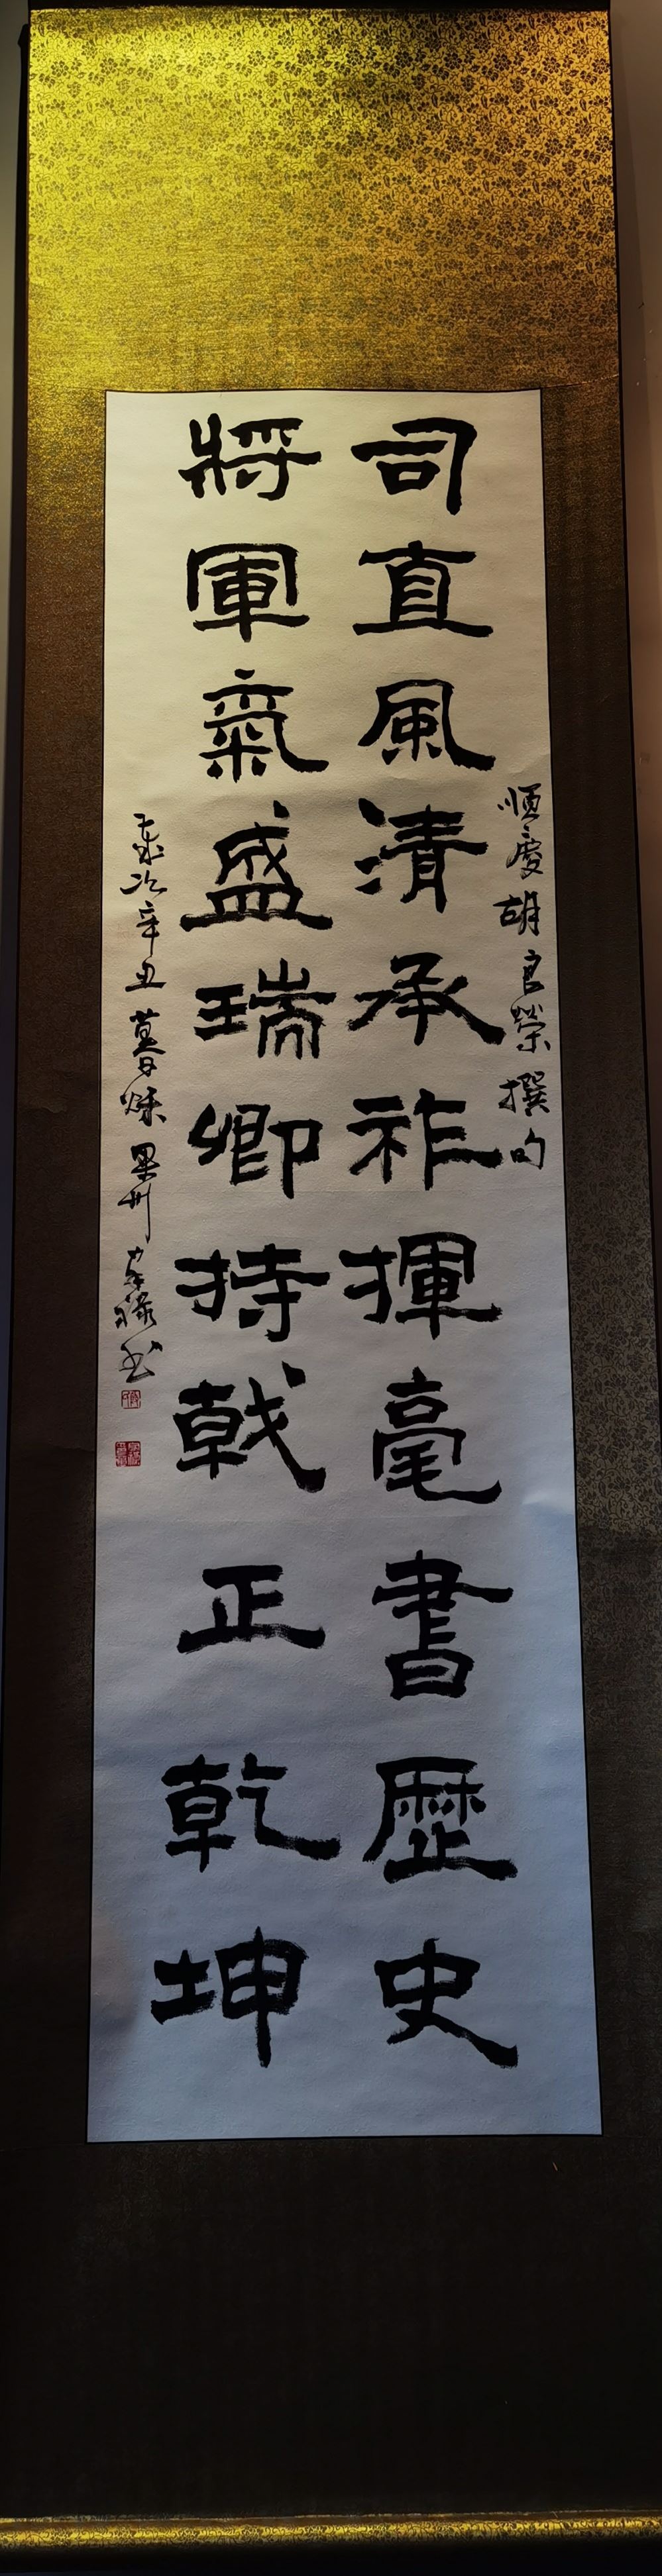 順慶胡良榮撰句
司直風清承祚揮毫書歷史
將軍氣盛瑞卿持戟正乾坤
歲次辛丑暮秋果州家祿书